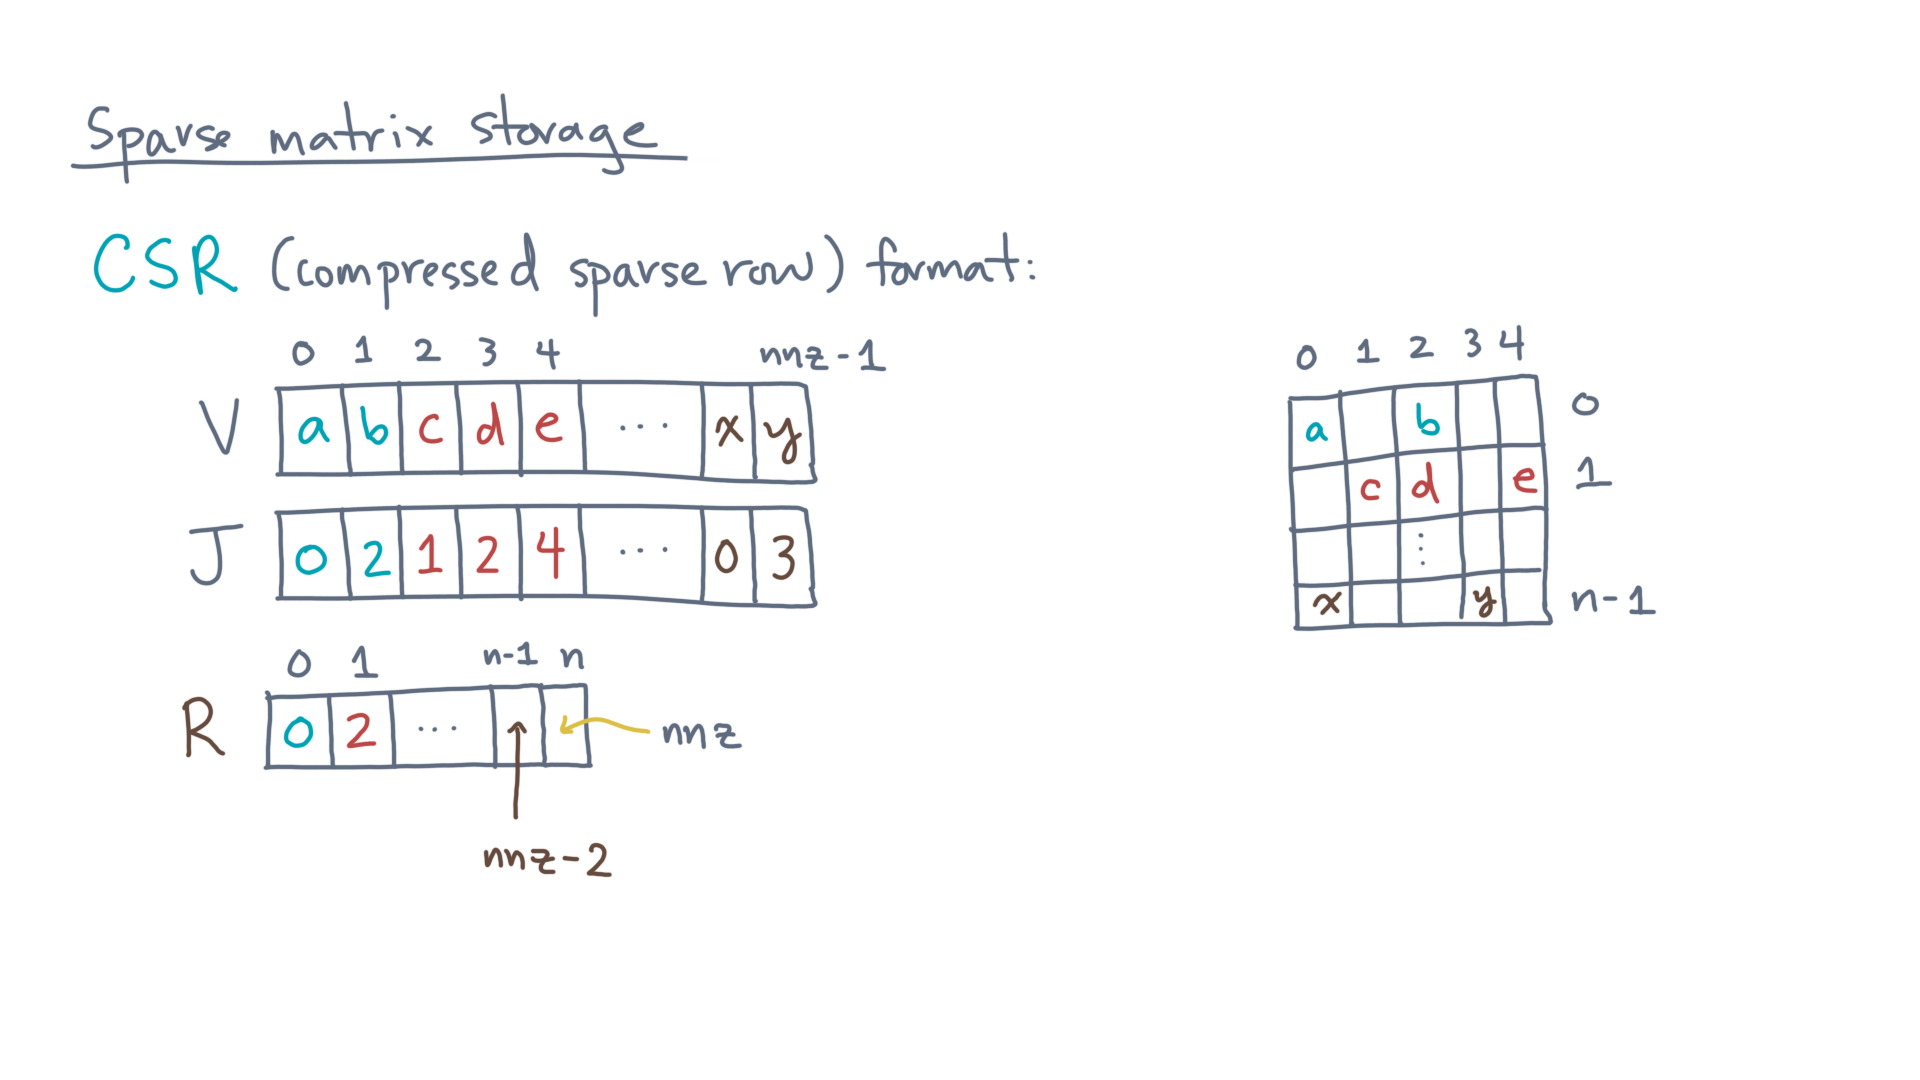 Sparse matrix storage
CSR (compressed sparse row) format:
0 1 2 3 4 nnz-1
V a b c d e ... x y
J 0 2 1 2 4 ... 0 3
0 1 n-1 n
R 0 2 ... nnz
nnz-2
0 1 2 3 4
a b 0
c d e 1
⋮
x y n-1